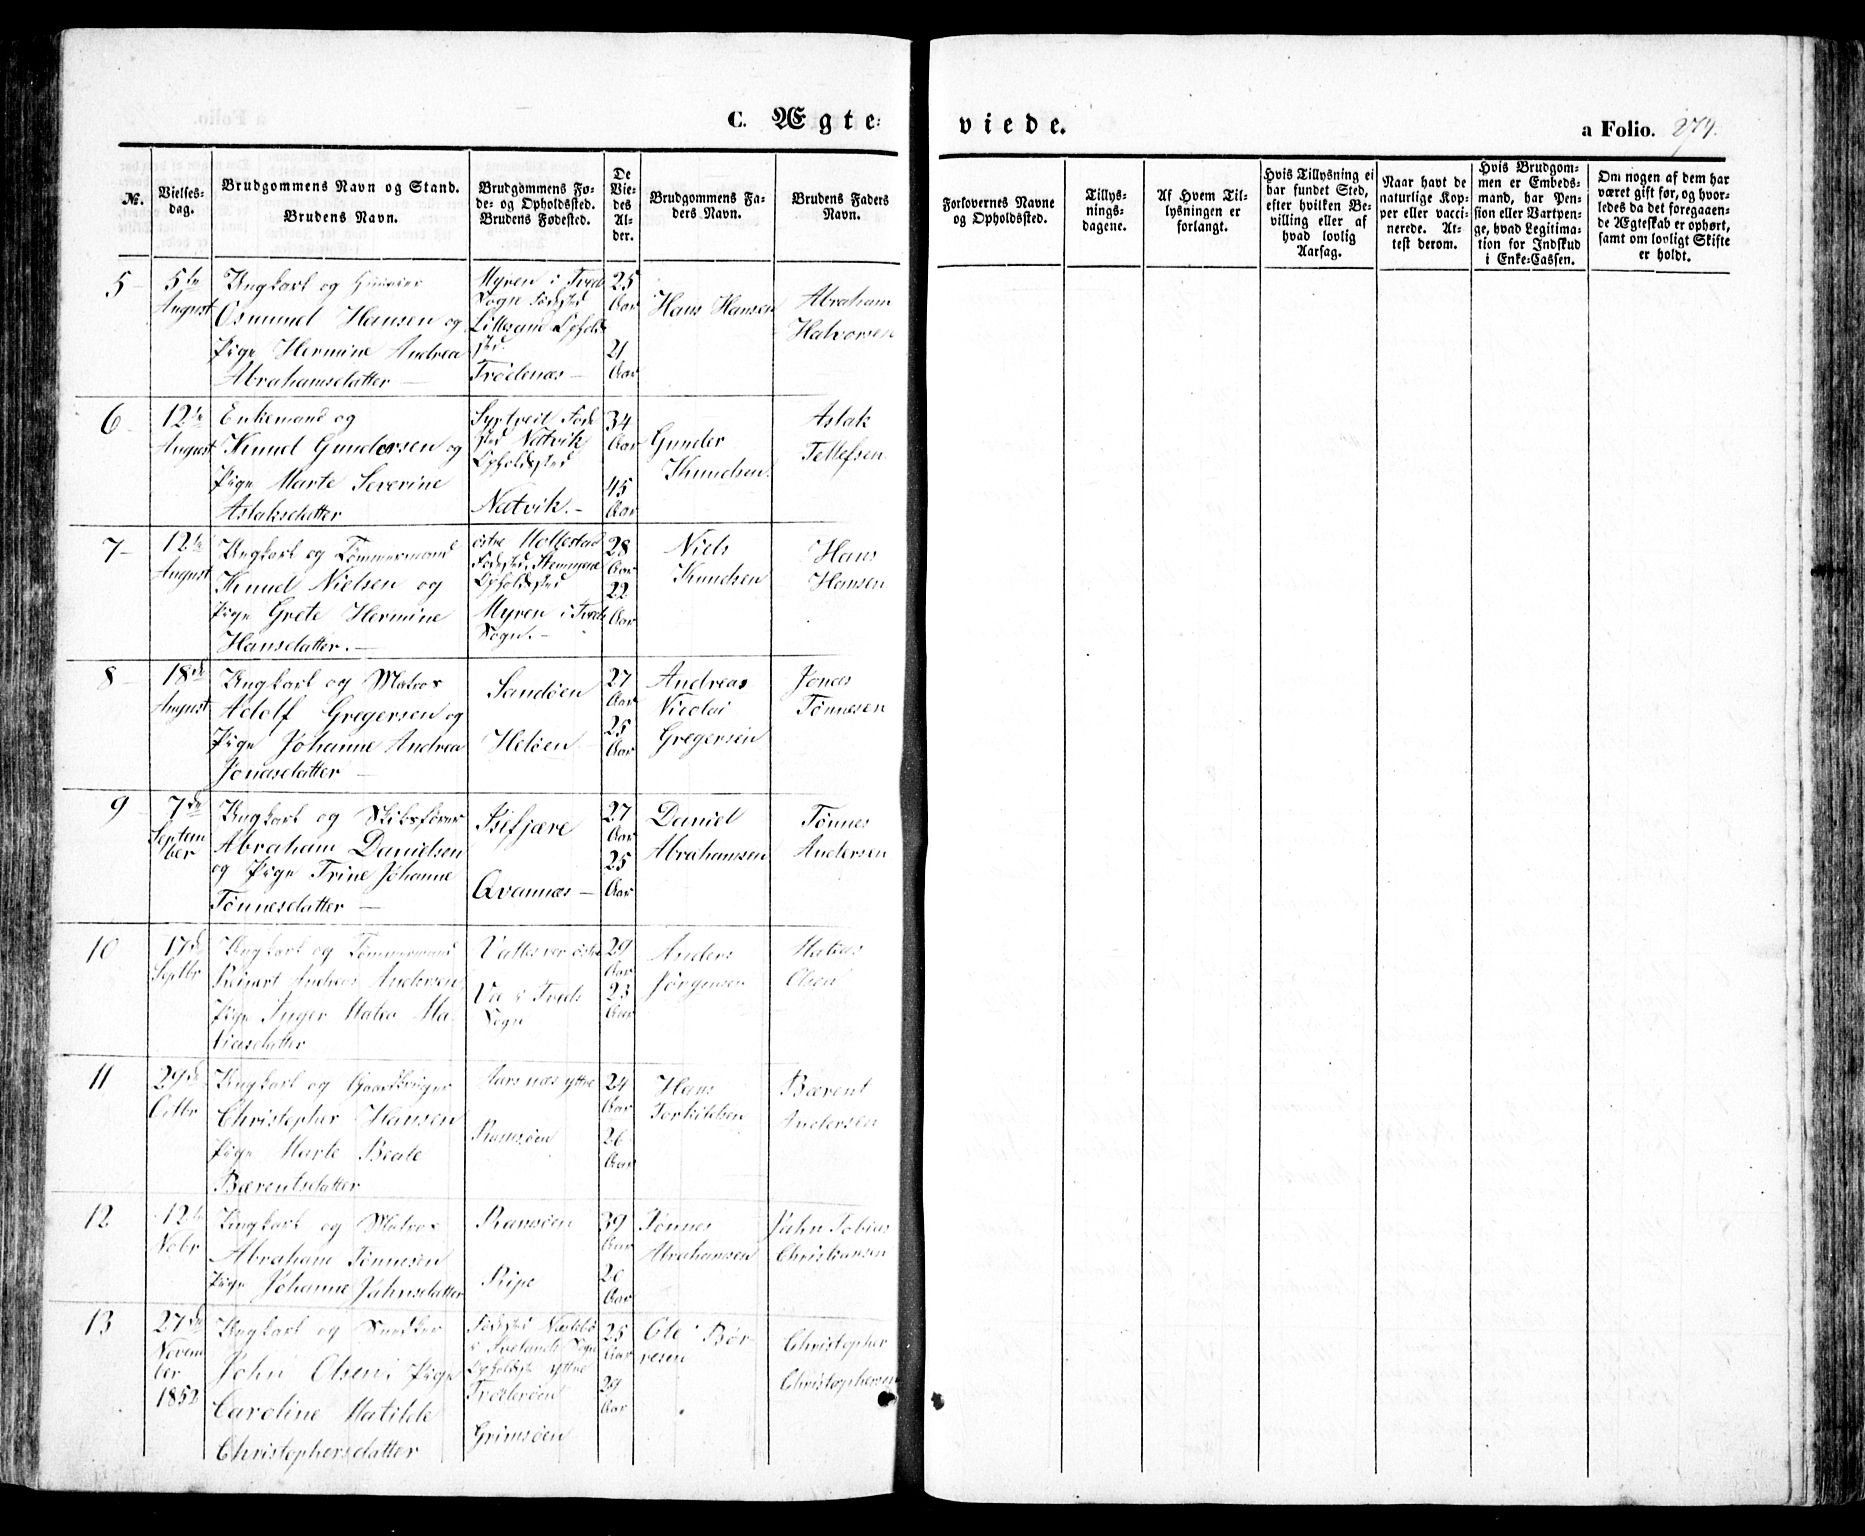 C. Ægte-
viede.
a Folio. 274.
№.
Vielses-
dag.
Brudgommens Navn og Stand.
Brudens Navn.
Brudgommens Fø-
de- og Opholdssted.
Brudens Fødested.
De
Vie-
des
Al-
der.
Brudgommens Fa-
ders Navn.
Brudens Faders
Navn.
Forlovernes Navne
og Opholdssted.
Tillys-
nings-
dagene.
Af Hvem Til-
lysningen er
forlangt.
Hvis Tillysning ei
har fundet Sted,
efter hvilken Be-
villing eller af
hvad lovlig
Aarsag.
Naar havt de
naturlige Kop-
per eller vacci-
nerede. At-
test derom.
Hvis Brudgom-
men er Embeds-
mand, har Pen-
sion eller Vartpen-
ge, hvad Legitima-
tion for Indskud
i Enke-Cassen.
Om nogen af dem har
været gift før, og hvor-
ledes da det foregaaen-
de Ægteskab er ophørt,
samt om lovligt Skifte
er holdt.
5
5te
August
Ungkarl og
Osmund Hansen og
Pige Hermine Andrea
Abrahamsdatter
Myren i Tveds
Sogn Fødested
Lillesand Opholds
sted
Trødenæs
25
Aar
21
Aar
Hans Hansen
Abraham
Halvorsen
6
12te
August
Enkemand og
Knud Gundersen og
Pige Marte Severine
Aslaksdatter
Føde
sted Natvik
Opholdssted
Natvik.
34
Aar
45
Aar
Gunder
Knudsen.
Aslak
Tellefsen
7
12te
August
Ungkarl og Tømmermand
Knud Nielsen og
Pige Grete Hermine
Hansdatter.
østre Mollestad
Fødested,
Opholdssted
Myren i Tveds
Sogn.
28
Aar
22
Aar
Niels
Knudsen
Hans
Hansen
8
18de
August
Ungkarl og Matros
Adolf Gregersen og
Pige Johanne Andrea
Jonasdatter
Sandøen
Heløen
27
Aar
25
Aar
Andreas
Nicolai
Gregersen
Jonas
Tønnesen
9
7de
Septem
ber
Ungkarl og Skibsfører
Abraham Danielsen
og Pige Trine Johanne
Tønnesdatter
Isefjære
Qvannæs
27
Aar
25
Aar
Daniel
Abrahamsen
Tønnes
Andersen
10
17de
Septbr
Ungkarl og Tømmermand
Reinert Andreas Andersen
Pige Inger Malea Ma
tiasdatter
østre
Vie i Tveds
Sogn
29
Aar
23
Aar
Anders
Jørgensen
Matias
Olsen
11
29de
Octbr
Ungkarl og Gaardbruger
Christopher Hansen
Pige Marte Beate
Bærentsdatter
Aarsnæs yttre
Ramsøen
24
Aar
26
Aar
Hans
Torkildsen
Bærent
Andersen
12
12te
Nobr
Ungkarl og Matros
Abraham Tønnesen
Pige Johanne Jahnsdatter
Ramsøen
Ripe
39
Aar
20
Aar
Tønnes
Abrahamsen
Jahn Tobias
Christiansen
13
27de
Novem
ber
1852
Ungkarl og Snedker
John Olsen, Pige
Caroline Matilde
Christophersdatter
Fødested
i Ivelands Sogn
Opholdst. yttre
Grimsøen
25
Aar
29
Aar
Ole Bør
resen
Christopher
Christophersen